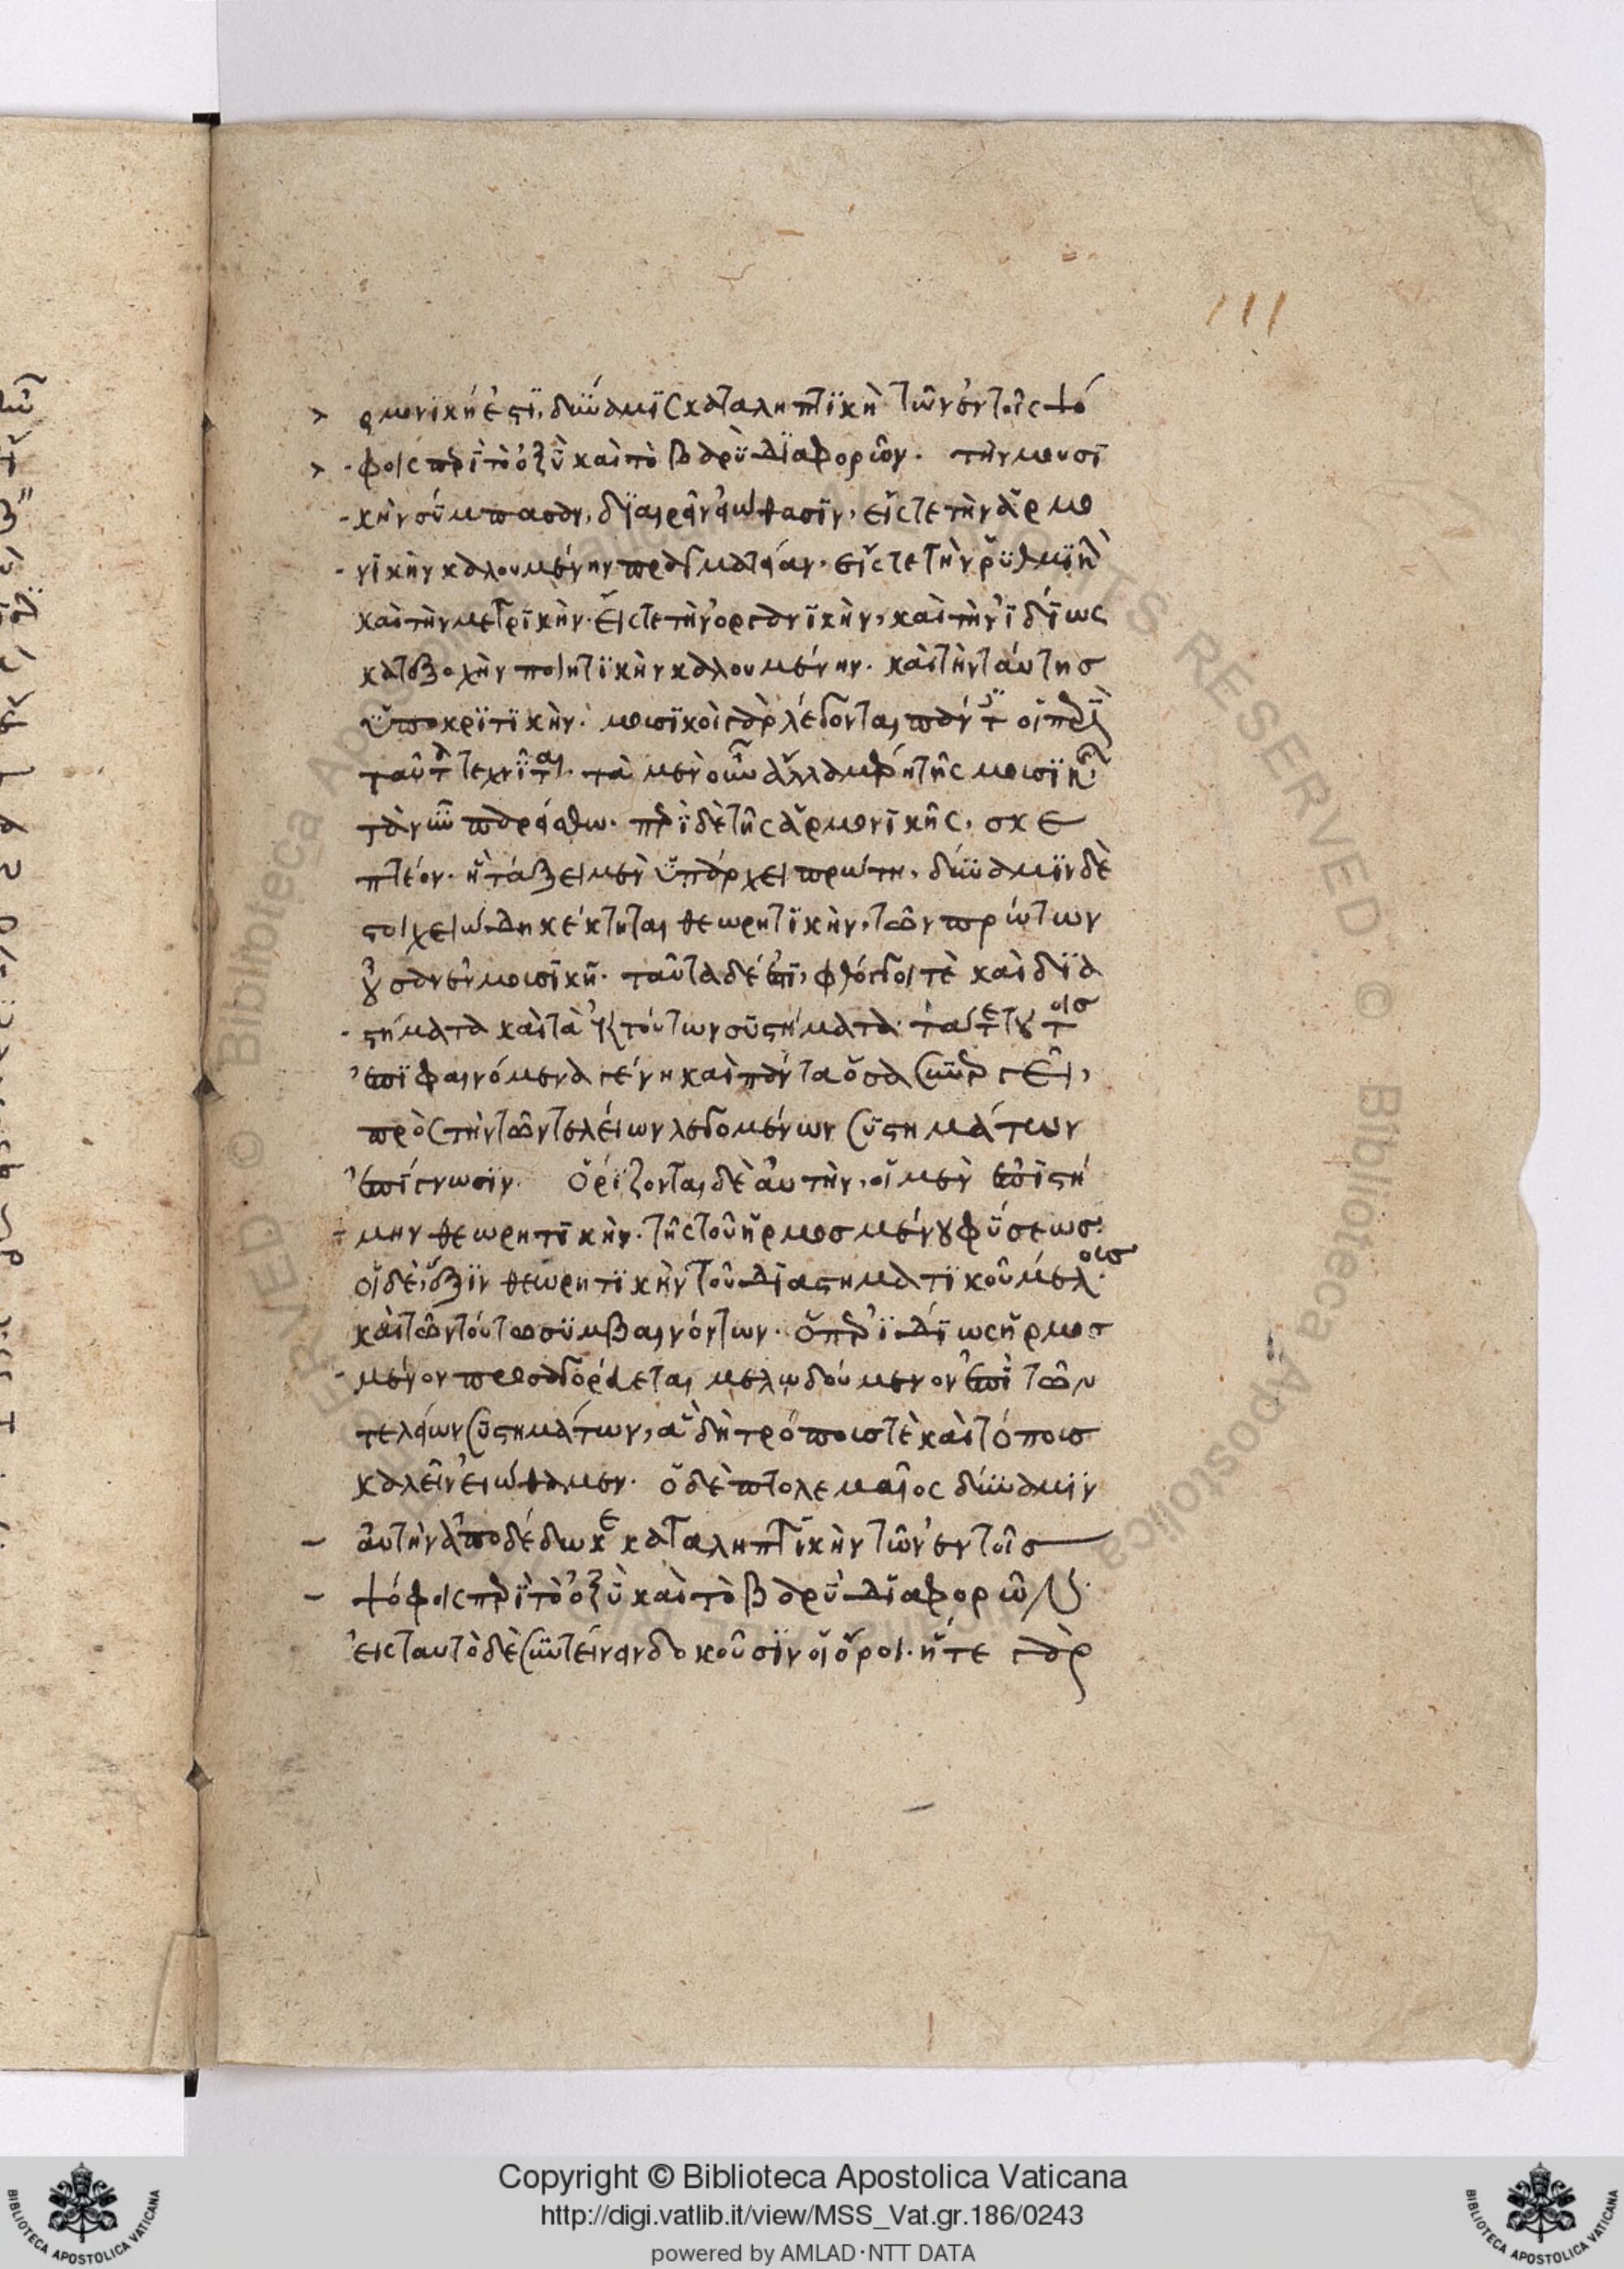 111
ρμονική ἐστι δύναμις καταληπτικὴ τῶν ἐν τοῖς ψό
φοις περὶ τὸ ὀξὺ καὶ τὸ βαρὺ διαφορῶν. τὴν μουσι
κὴν σύμπασαν, διαιρεῖν εἰώθασιν, εἴς τε τὴν ἁρμο
νικὴν καλουμένην πραγματείαν. εἴς τε τὴν ῥυθμικὴν
καὶ τὴν μετρικὴν. εἴς τε τὴν ὀργανικὴν, καὶ τὴν ἰδίως
κατεξοχὴν ποιητικὴν καλουμένην. καὶ τὴν ταύτης
ὑποκριτικὴν. μουσικοὶ γὰρ λέγονται πάντες οἱ περὶ
ταῦτα τεχνῖται. τὰ μὲν οὖν ἄλλα μέρη τῆς μουσικῆς
τανῦν παρείσθω. περὶ δὲ τῆς ἁρμονικῆς, σκε
πτέον. ἣ τάξει μὲν ὑπάρχει πρώτη, δύναμιν δὲ
στοιχειώδη κέκτηται θεωρητικὴν, τῶν πρώτων
οὖσαν ἐν μουσικῇ. ταῦτα δέ ἐστι, φθόγγοι τὲ καὶ δια
στήματα καὶ τὰ ἐκ τούτων συστήματα τά τε τούτοις
ἐπιφαινόμενα γένη καὶ πάντα ὅσα συνεργεῖ,
πρὸς τὴν τῶν τελείων λεγομένων συστημάτων
ἐπίγνωσιν. ὁρίζονται δὲ αὐτὴν, οἱ μὲν ἐπιστή
μην θεωρητικὴν. τῆς τοῦ ἡρμοσμένου φύσεως.
οἱ δὲ, ἕξιν θεωρητικὴν τοῦ διαστηματικοῦ μέλους.
καὶ τῶν τούτω συμβαινόντων. ὅπερ ἰδίως ἡρμοσ
μένον προσαγορεύεται μελῳδούμενον ἐπὶ τῶν
τελείων συστημάτων, ἃ δὴ τρόπους τὲ καὶ τόπους
καλεῖν εἰώθαμεν. ὁ δὲ πτολεμαῖος δύναμιν
αὐτὴν ἀποδέδωκε καταληπτικὴν τῶν ἐν τοῖς
ψόφοις περὶ τὸ ὀξὺ καὶ τὸ βαρὺ διαφορῶν.
εἰς ταυτὸ δὲ συντείνειν δοκοῦσιν οἱ ὅροι. ἥ τε γὰρ
Copyright © Biblioteca Apostolica Vaticana
http://digi.vatlib.it/view/MSS_Vat.gr.186/0243
powered by AMLAD·NTT DATA